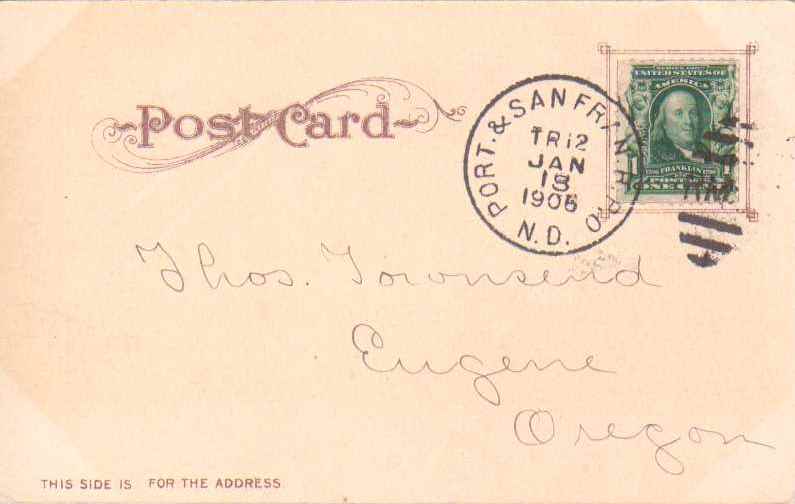 Post Card
PORT. & SAN FRAN. R.P.O.
TR 12
JAN
18
1906
N.D.
SERIES 1902
UNITED STATES OF
AMERICA
FRANKLIN
POSTAGE
ONE CENT
Thos. Townsend
Eugene
Oregon
THIS SIDE IS FOR THE ADDRESS.